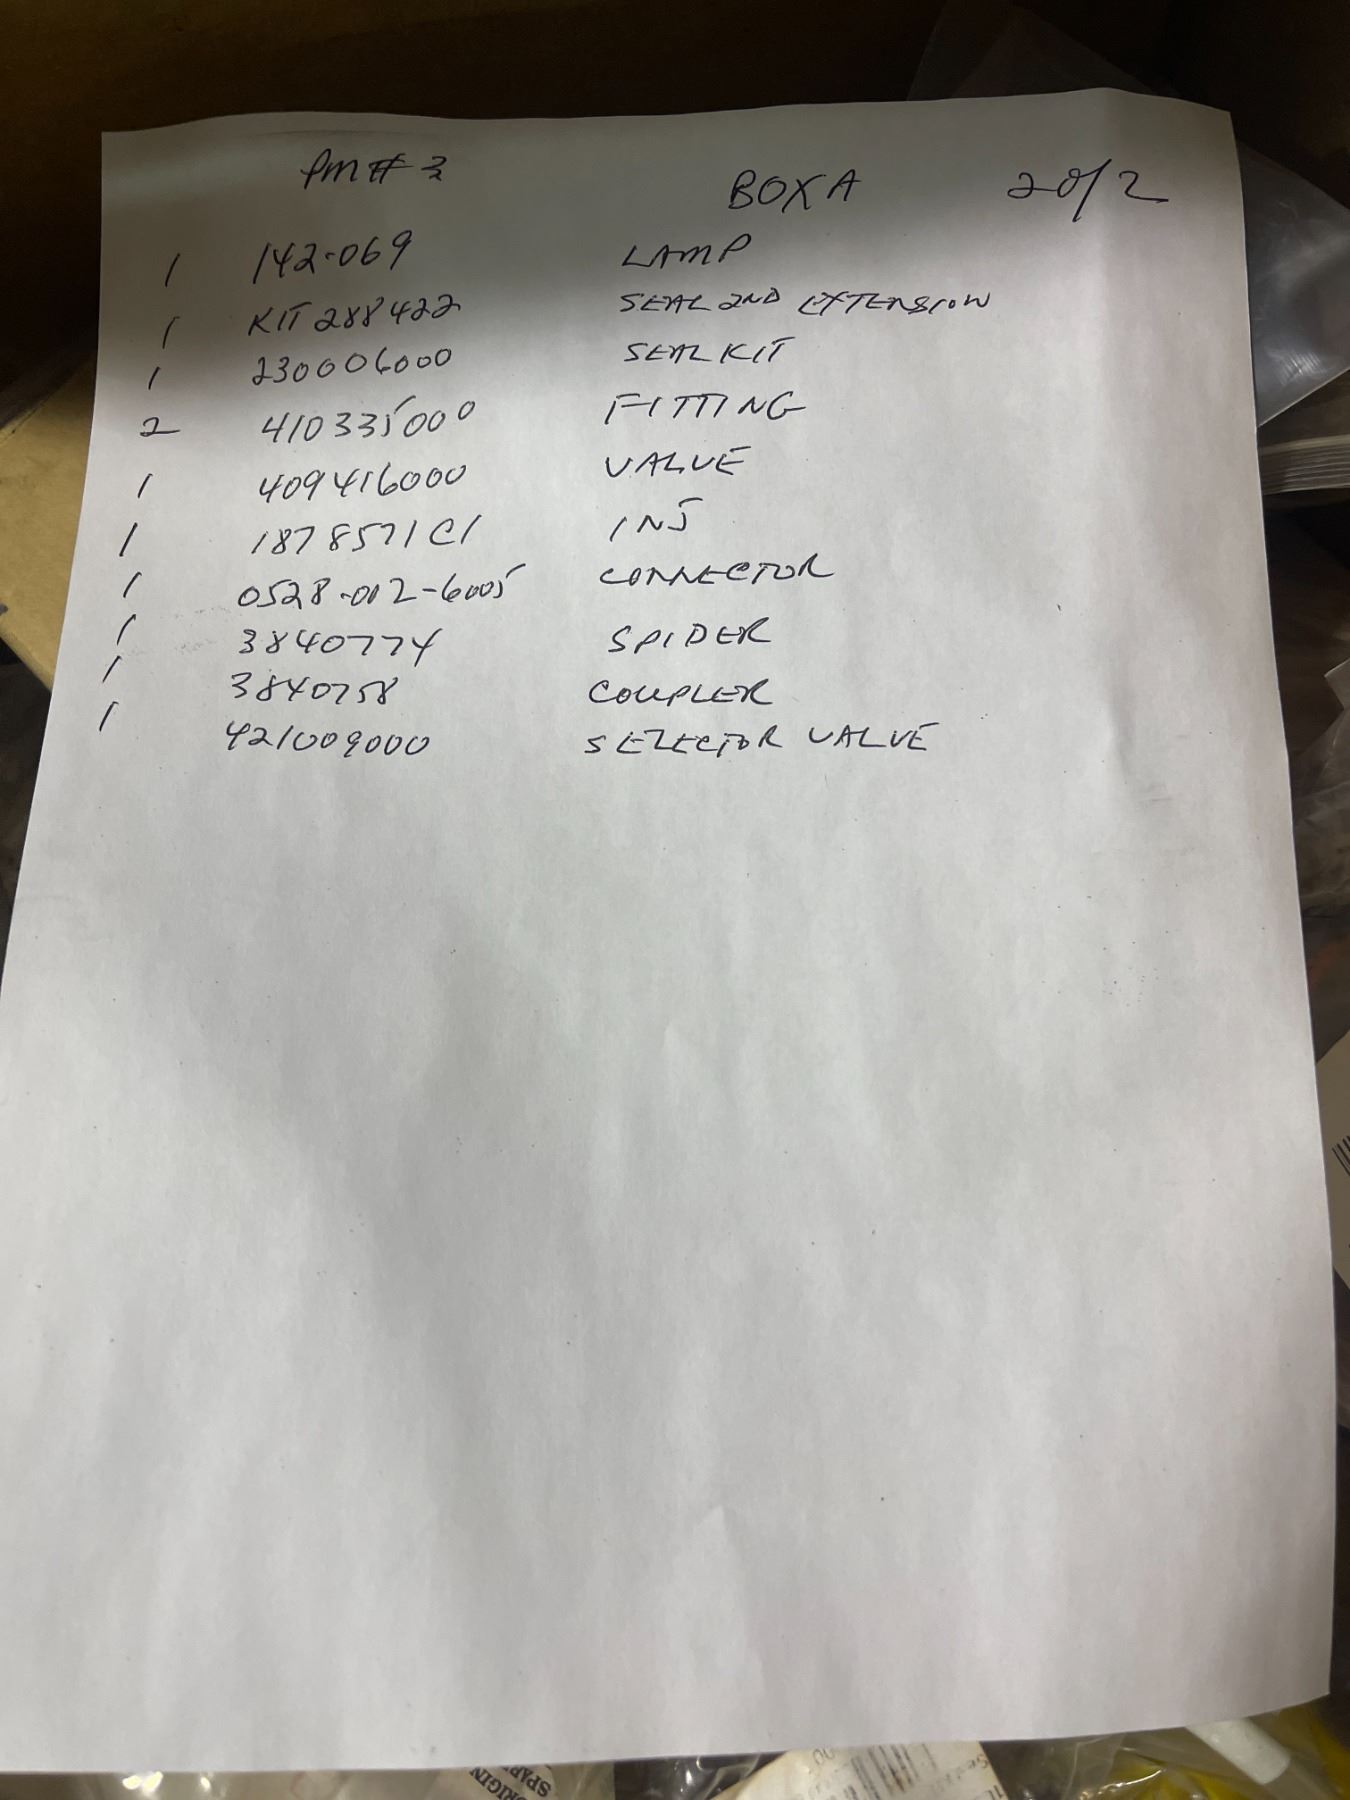 PM# 3 BOX A 2 of 2
1 142-069 LAMP
1 KIT 288422 SEAL 2ND EXTENSION
1 230006000 SEAL KIT
2 410335000 FITTING
1 409416000 VALVE
1 1878571C1 INJ
1 0528-012-6005 CONNECTOR
1 3840774 SPIDER
1 3840758 COUPLER
1 421009000 SELECTOR VALVE
ORIGIN